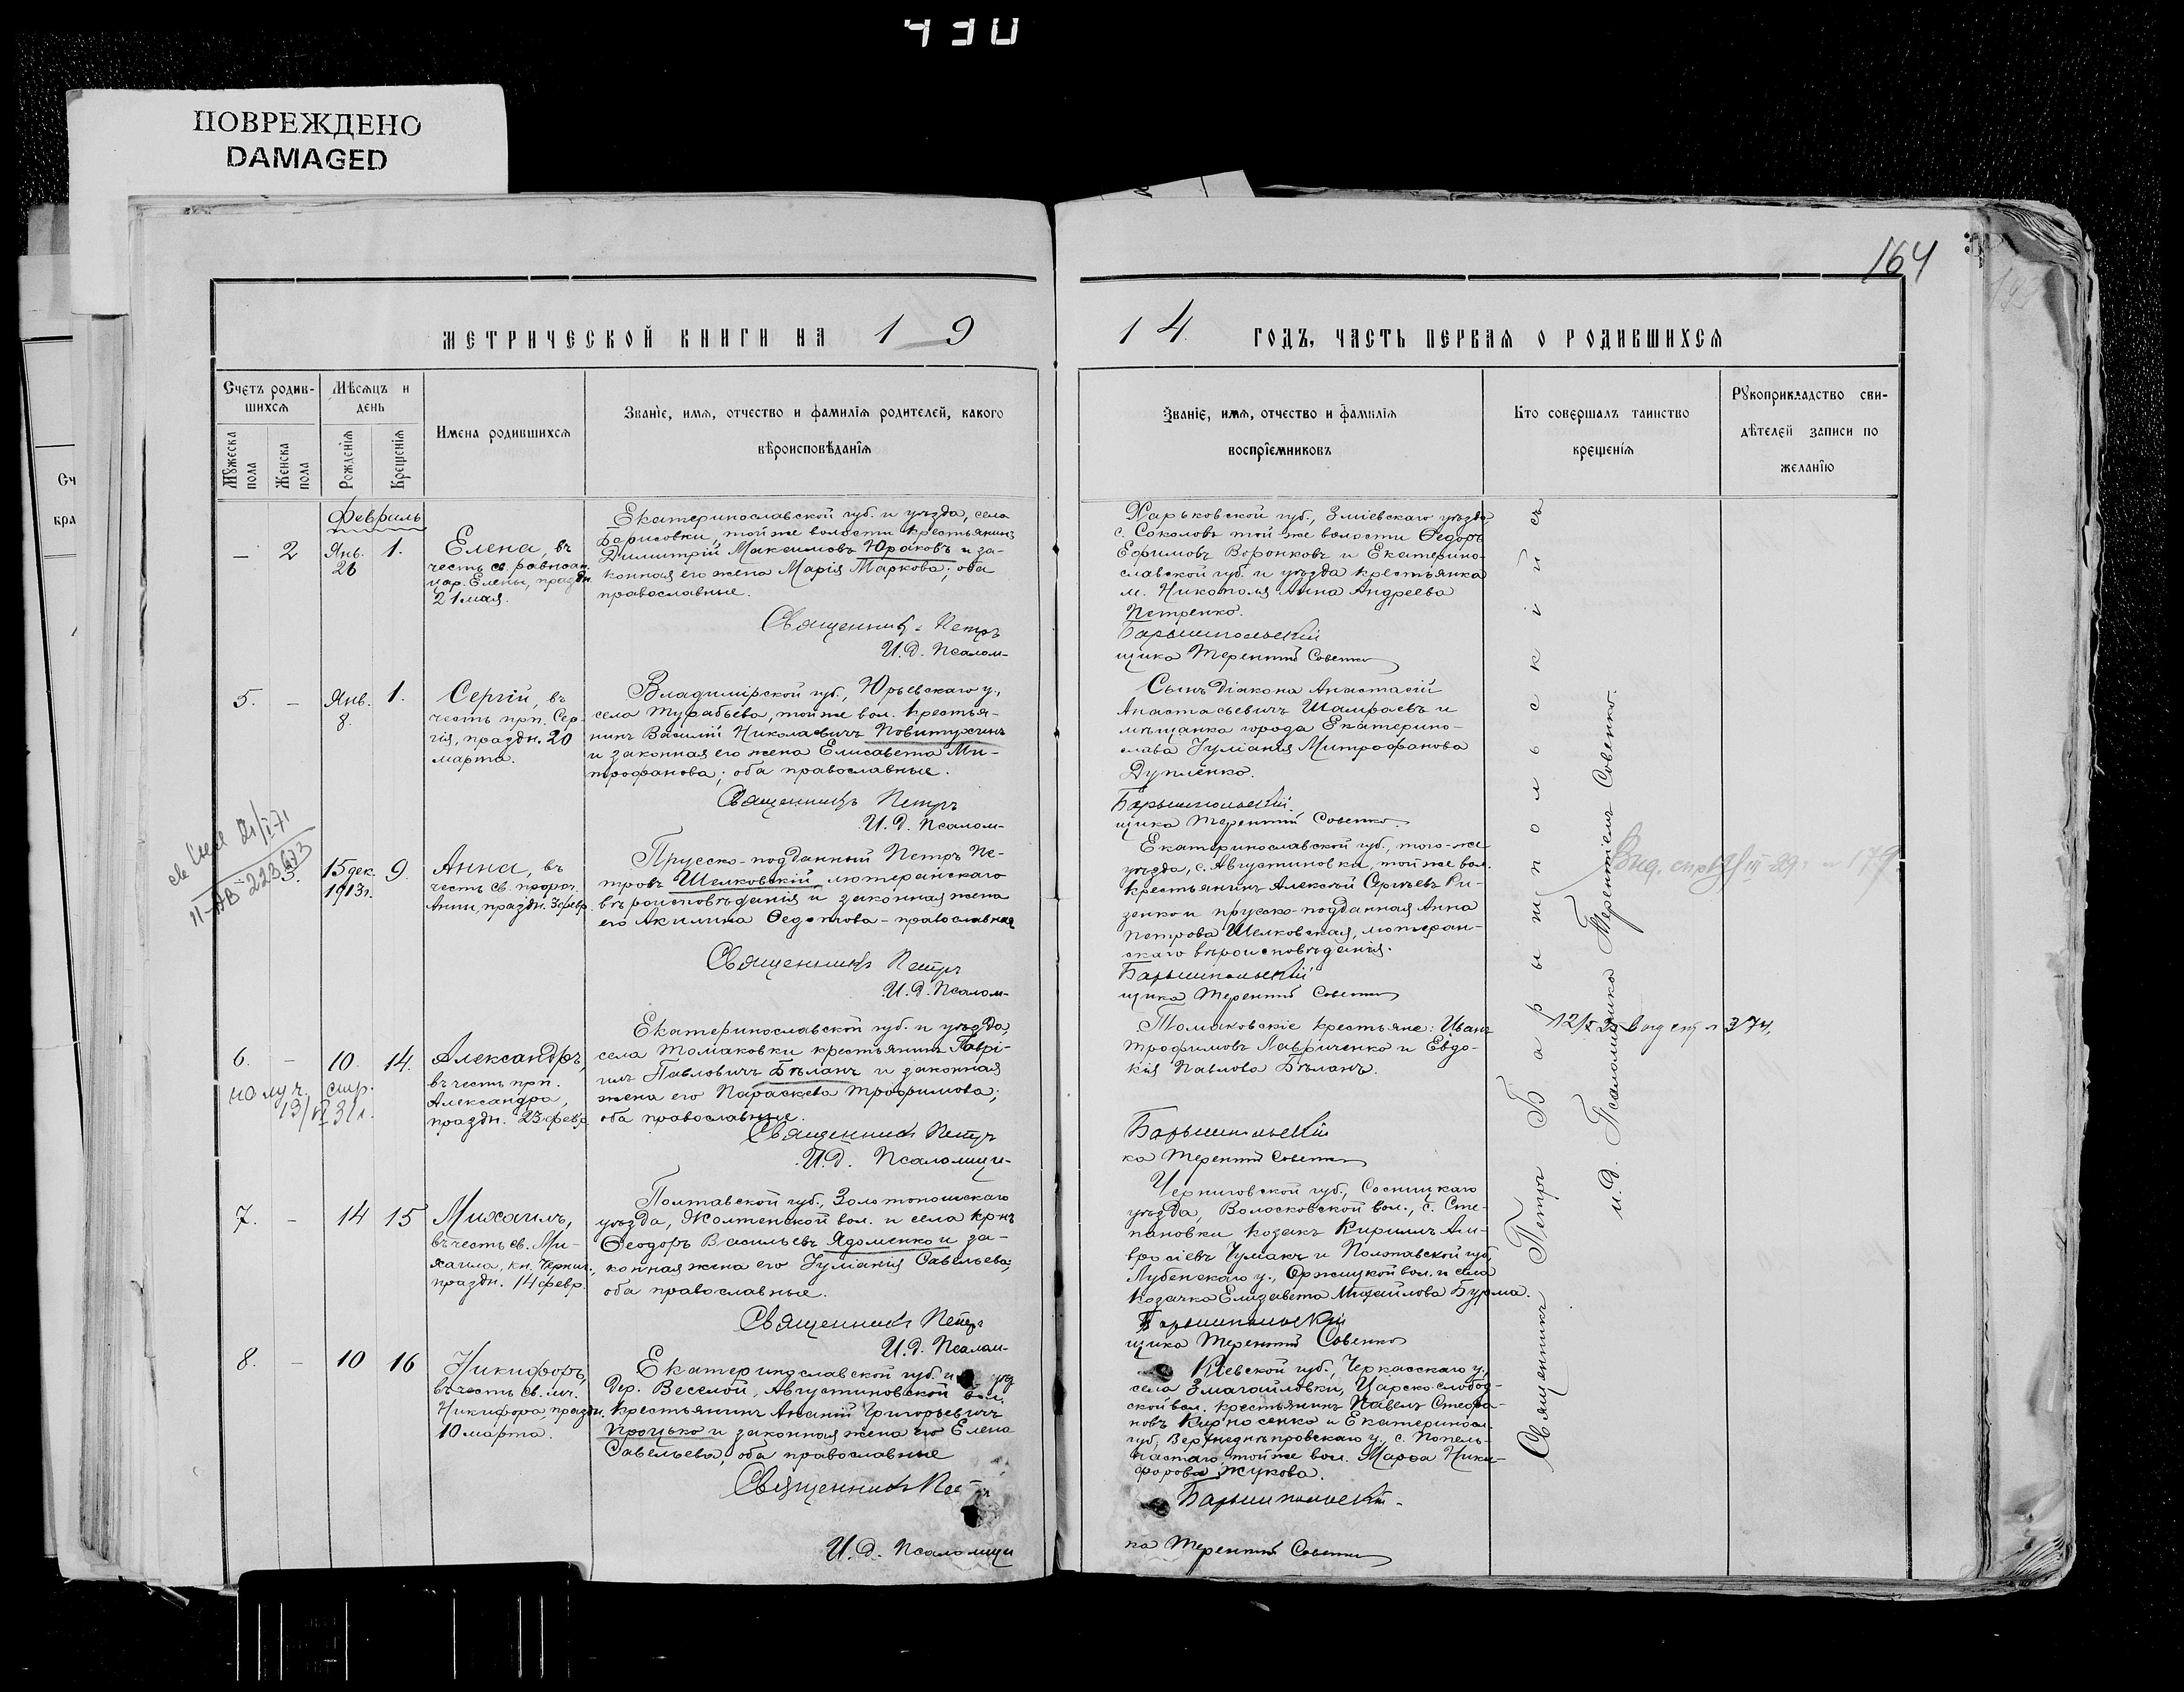 430
ПОВРЕЖДЕНО
DAMAGED
164
МЕТРИЧЕСКОЙ КНИГИ НА 19
14 ГОДЪ, ЧАСТЬ ПЕРВАЯ О РОДИВШИХСЯ
Счетъ родив-
шихся
Мѣсяцъ и
день
Мужеска
пола
Женска
пола
Рожденїя
Крещенїя
Имена родившихся
Званїе, имя, отчество и фамилїя родителей, какого
вѣроисповѣданїя
Званїе, имя, отчество и фамилїя
воспрїемниковъ
Кто совершалъ таинство
крещенїя
Рукоприкладство сви-
дѣтелей записи по
желанїю
Сч
кра
Февраль
— 2 Янв. 26 1.
Елена, въ
честь св. равноап.
цар. Елены, праздн.
21 мая.
Екатеринославской губ. и уѣзда, села
Борисовки, той же волости крестьянинъ
Димитрій Максимовъ Юраковъ и за-
конная его жена Марія Маркова; оба
православные.
Священникъ Петръ
И. д. Псалом-
Харьковской губ., Зміевскаго уѣзда,
с. Соколовъ той же волости Ѳедоръ
Ефимовъ Воронковъ и Екатерино-
славской губ. и уѣзда крестьянка
м. Никополя Анна Андреева
Петренко.
Барышпольскій
щика Терентій Совенко
5. — Янв. 8. 1.
Сергій, въ
честь прп. Сер-
гія, праздн. 20
марта.
Владимірской губ., Юрьевскаго у.,
села Турабьева, той же вол. крестья-
нинъ Василій Николаевичъ Повитухинъ
и законная его жена Елисавета Ми-
трофанова; оба православные.
Священникъ Петръ
И. д. Псалом-
Сынъ діакона Анастасій
Анастасьевичъ Шамраевъ и
мѣщанка города Екатерино-
слава Іуліанія Митрофанова
Дупленко.
Барышпольскій
щика Терентій Совенко
21/I 71
II-АВ 223673
3. 15 дек. 1913 г. 9.
Анна, въ
честь св. пророч.
Анны, праздн. 3 февр.
Прусско-подданный Петръ Пе-
тровъ Шелковскій лютеранскаго
вѣроисповѣданія и законная жена
его Акилина Ѳедотова - православная
Священникъ Петръ
И. д. Псалом-
Екатеринославской губ., того-же
уѣзда, с. Августиновки, той же вол.
крестьянинъ Алексѣй Сергѣевъ Ри-
зенко и прусско-подданная Анна
Петрова Шелковская, лютеран-
скаго вѣроисповѣданія.
Барышпольскій
щика Терентій Совенко
6. — 10. 14.
Александръ,
въ честь прп.
Александра,
праздн. 23 февр.
Екатеринославской губ. и уѣзда,
села Томаковки крестьянинъ Гаврі-
илъ Павловичъ Бѣланъ и законная
жена его Параскева Трофимова;
оба православные.
Священникъ Петръ
И. д. Псаломщи-
Томаковскіе крестьяне: Иванъ
Трофимовъ Лавриченко и Евдо-
кія Павлова Бѣланъ.
Барышпольскій
ка Терентій Совенко
7. — 14 15
Михаилъ,
въ честь св. Ми-
хаила, кн. Черниг.,
праздн. 14 февр.
Полтавской губ., Золотоношскаго
уѣзда, Жолтенской вол. и села кр-нъ
Ѳеодоръ Васильевъ Ядоменко и за-
конная жена его Іуліанія Савельева;
оба православные.
Священникъ Петръ
И. д. Псалом-
Черниговской губ., Сосницкаго
уѣзда, Волосковской вол., с. Сте-
пановки козакъ Кириллъ Ам-
вросіевъ Чумакъ и Полтавской губ.,
Лубенскаго у., Оржицкой вол. и села
козачка Елизавета Михайлова Бурма.
Барышпольскій
щика Терентій Совенко
8. — 10 16
Никифоръ,
въ честь св. мч.
Никифора, праздн.
10 марта.
Екатеринославской губ. и уѣзд
дер. Веселой, Августиновской вол.
крестьянинъ Ананій Григорьевичъ
Процько и законная жена его Елена
Савельева; оба православные
Священникъ Петръ
И. д. Псаломщи
Кіевской губ., Черкасскаго у.,
села Змагайловки, Царско-слобод-
ской вол. крестьянинъ Павелъ Стефа-
новъ Кирносенко и Екатеринос.
губ., Верхнеднѣпровскаго у., с. Попель-
настаго той же вол. Марѳа Ники-
форова Жукова.
Барышпольскій
ка Терентій Совенко
Священникъ Петръ Барышпольскій съ
и. д. Псаломщика Терентіемъ Совенко.
179
374